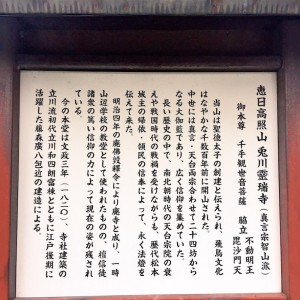 恵日高照山 兎川霊瑞寺(真言宗智山派)
御本尊 千手観世音菩薩 脇立 不動明王 毘沙門天
当山は聖徳太子の創建と伝えられ、飛鳥文化
はなやかな千数百年前に開山された。
中世には真言・天台両宗合わせて二十四坊から
なる大伽藍であり、広く信仰を集めていた。
長い歴史の中で、南北朝時代の天台宗院の衰
えや戦国時代の戦禍を受けながらも、歴代松本
城主の帰依・領民の信奉によって、永く法燈を
伝えて来た。
明治四年の廃佛毀釋令により廃寺と成り、一時
山辺学校の教室として使われたものの、檀信徒
諸衆の篤い信仰の力によって現在の姿が残され
ている。
今の本堂は文政三年(一八二〇)、寺社建築の
立川流初代立川和四朗富棟とともに江戸後期に
活躍した藤森廣八包近の建造による。